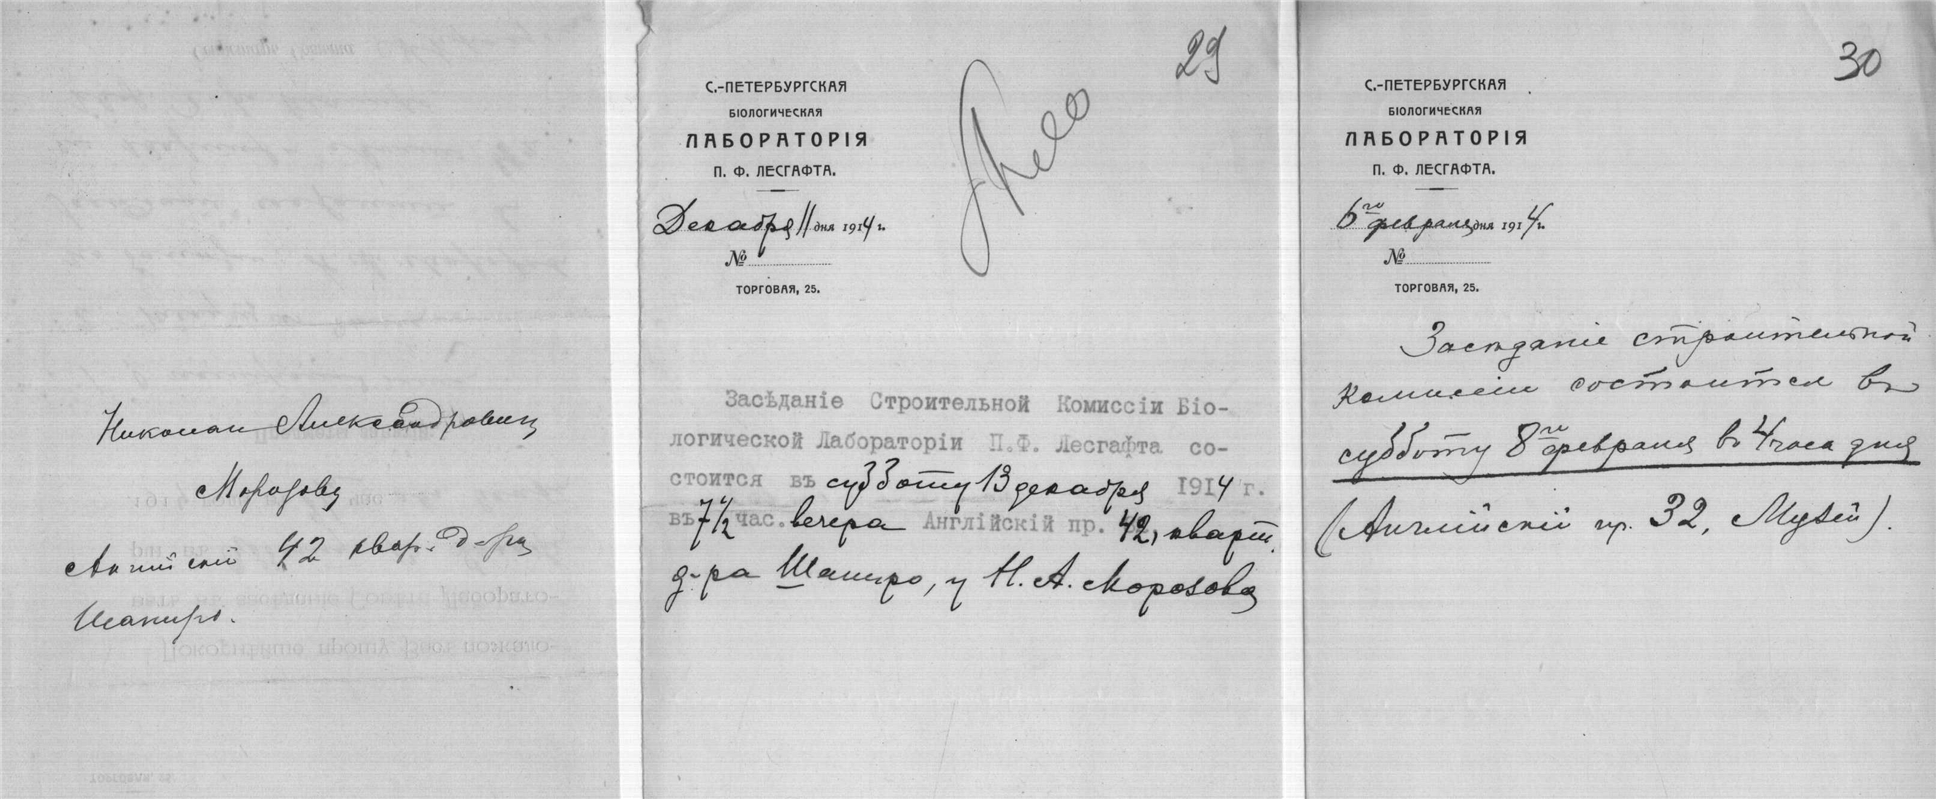 Николаю Александровичу
Морозову
Англійскій 42 квар. д-ра
Шапиро.
29
С.-ПЕТЕРБУРГСКАЯ
БІОЛОГИЧЕСКАЯ
ЛАБОРАТОРІЯ
П. Ф. ЛЕСГАФТА.
Декабря 11 дня 1914 г.
№
ТОРГОВАЯ, 25.
Засѣданіе Строительной Комиссіи Біо-
логической Лабораторіи П.Ф. Лесгафта со-
стоится въ субботу 13 декабря 1914 г.
въ 7 ½ час. вечера Англійскій пр. 42, кварт.
д-ра Шапиро, у Н. А. Морозова
30
С.-ПЕТЕРБУРГСКАЯ
БІОЛОГИЧЕСКАЯ
ЛАБОРАТОРІЯ
П. Ф. ЛЕСГАФТА.
6го февраля дня 1914 г.
№
ТОРГОВАЯ, 25.
Засѣданіе строительной
комиссіи состоится въ
субботу 8го февраля въ 4 часа дня
(Англійскій пр. 32, Музей).